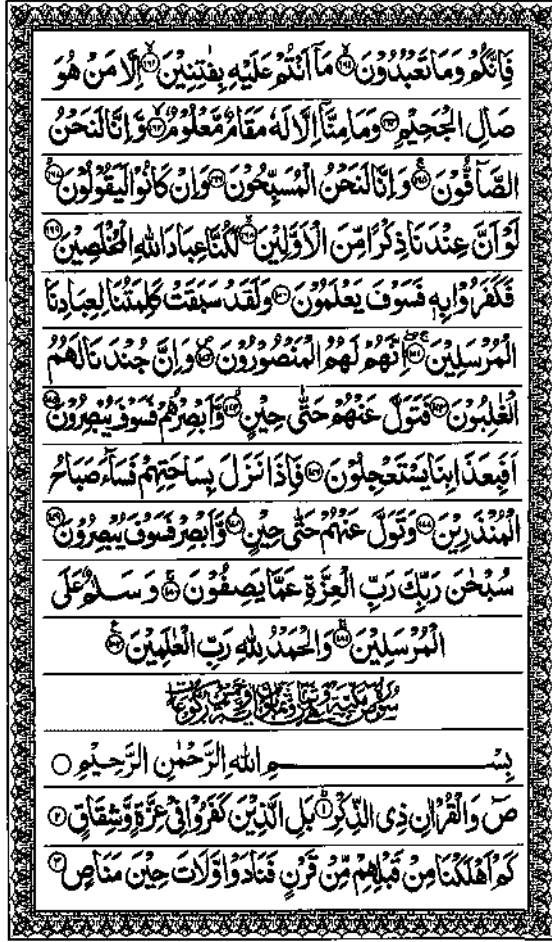 فَاِنَّكُمْ وَمَا تَعْبُدُوْنَ ﴿١٦١﴾ مَآ اَنْتُمْ عَلَيْهِ بِفٰتِنِيْنَ ﴿١٦٢﴾ اِلَّا مَنْ هُوَ
صَالِ الْجَحِيْمِ ﴿١٦٣﴾ وَمَا مِنَّآ اِلَّا لَهٗ مَقَامٌ مَّعْلُوْمٌ ﴿١٦٤﴾ وَّاِنَّا لَنَحْنُ
الصَّآفُّوْنَ ﴿١٦٥﴾ وَاِنَّا لَنَحْنُ الْمُسَبِّحُوْنَ ﴿١٦٦﴾ وَاِنْ كَانُوْا لَيَقُوْلُوْنَ ﴿١٦٧﴾
لَوْ اَنَّ عِنْدَنَا ذِكْرًا مِّنَ الْاَوَّلِيْنَ ﴿١٦٨﴾ لَكُنَّا عِبَادَ اللّٰهِ الْمُخْلَصِيْنَ ﴿١٦٩﴾
فَكَفَرُوْا بِهٖ فَسَوْفَ يَعْلَمُوْنَ ﴿١٧٠﴾ وَلَقَدْ سَبَقَتْ كَلِمَتُنَا لِعِبَادِنَا
الْمُرْسَلِيْنَ ﴿١٧١﴾ اِنَّهُمْ لَهُمُ الْمَنْصُوْرُوْنَ ﴿١٧٢﴾ وَاِنَّ جُنْدَنَا لَهُمُ
الْغٰلِبُوْنَ ﴿١٧٣﴾ فَتَوَلَّ عَنْهُمْ حَتّٰى حِيْنٍ ﴿١٧٤﴾ وَّاَبْصِرْهُمْ فَسَوْفَ يُبْصِرُوْنَ ﴿١٧٥﴾
اَفَبِعَذَابِنَا يَسْتَعْجِلُوْنَ ﴿١٧٦﴾ فَاِذَا نَزَلَ بِسَاحَتِهِمْ فَسَآءَ صَبَاحُ
الْمُنْذَرِيْنَ ﴿١٧٧﴾ وَتَوَلَّ عَنْهُمْ حَتّٰى حِيْنٍ ﴿١٧٨﴾ وَّاَبْصِرْ فَسَوْفَ يُبْصِرُوْنَ ﴿١٧٩﴾
سُبْحٰنَ رَبِّكَ رَبِّ الْعِزَّةِ عَمَّا يَصِفُوْنَ ﴿١٨٠﴾ وَسَلٰمٌ عَلَى
الْمُرْسَلِيْنَ ﴿١٨١﴾ وَالْحَمْدُ لِلّٰهِ رَبِّ الْعٰلَمِيْنَ ﴿١٨٢﴾
بِسْمِ اللّٰهِ الرَّحْمٰنِ الرَّحِيْمِ ○
صٓ وَالْقُرْاٰنِ ذِى الذِّكْرِ ﴿١﴾ بَلِ الَّذِيْنَ كَفَرُوْا فِىْ عِزَّةٍ وَّشِقَاقٍ ﴿٢﴾
كَمْ اَهْلَكْنَا مِنْ قَبْلِهِمْ مِّنْ قَرْنٍ فَنَادَوْا وَّلَاتَ حِيْنَ مَنَاصٍ ﴿٣﴾